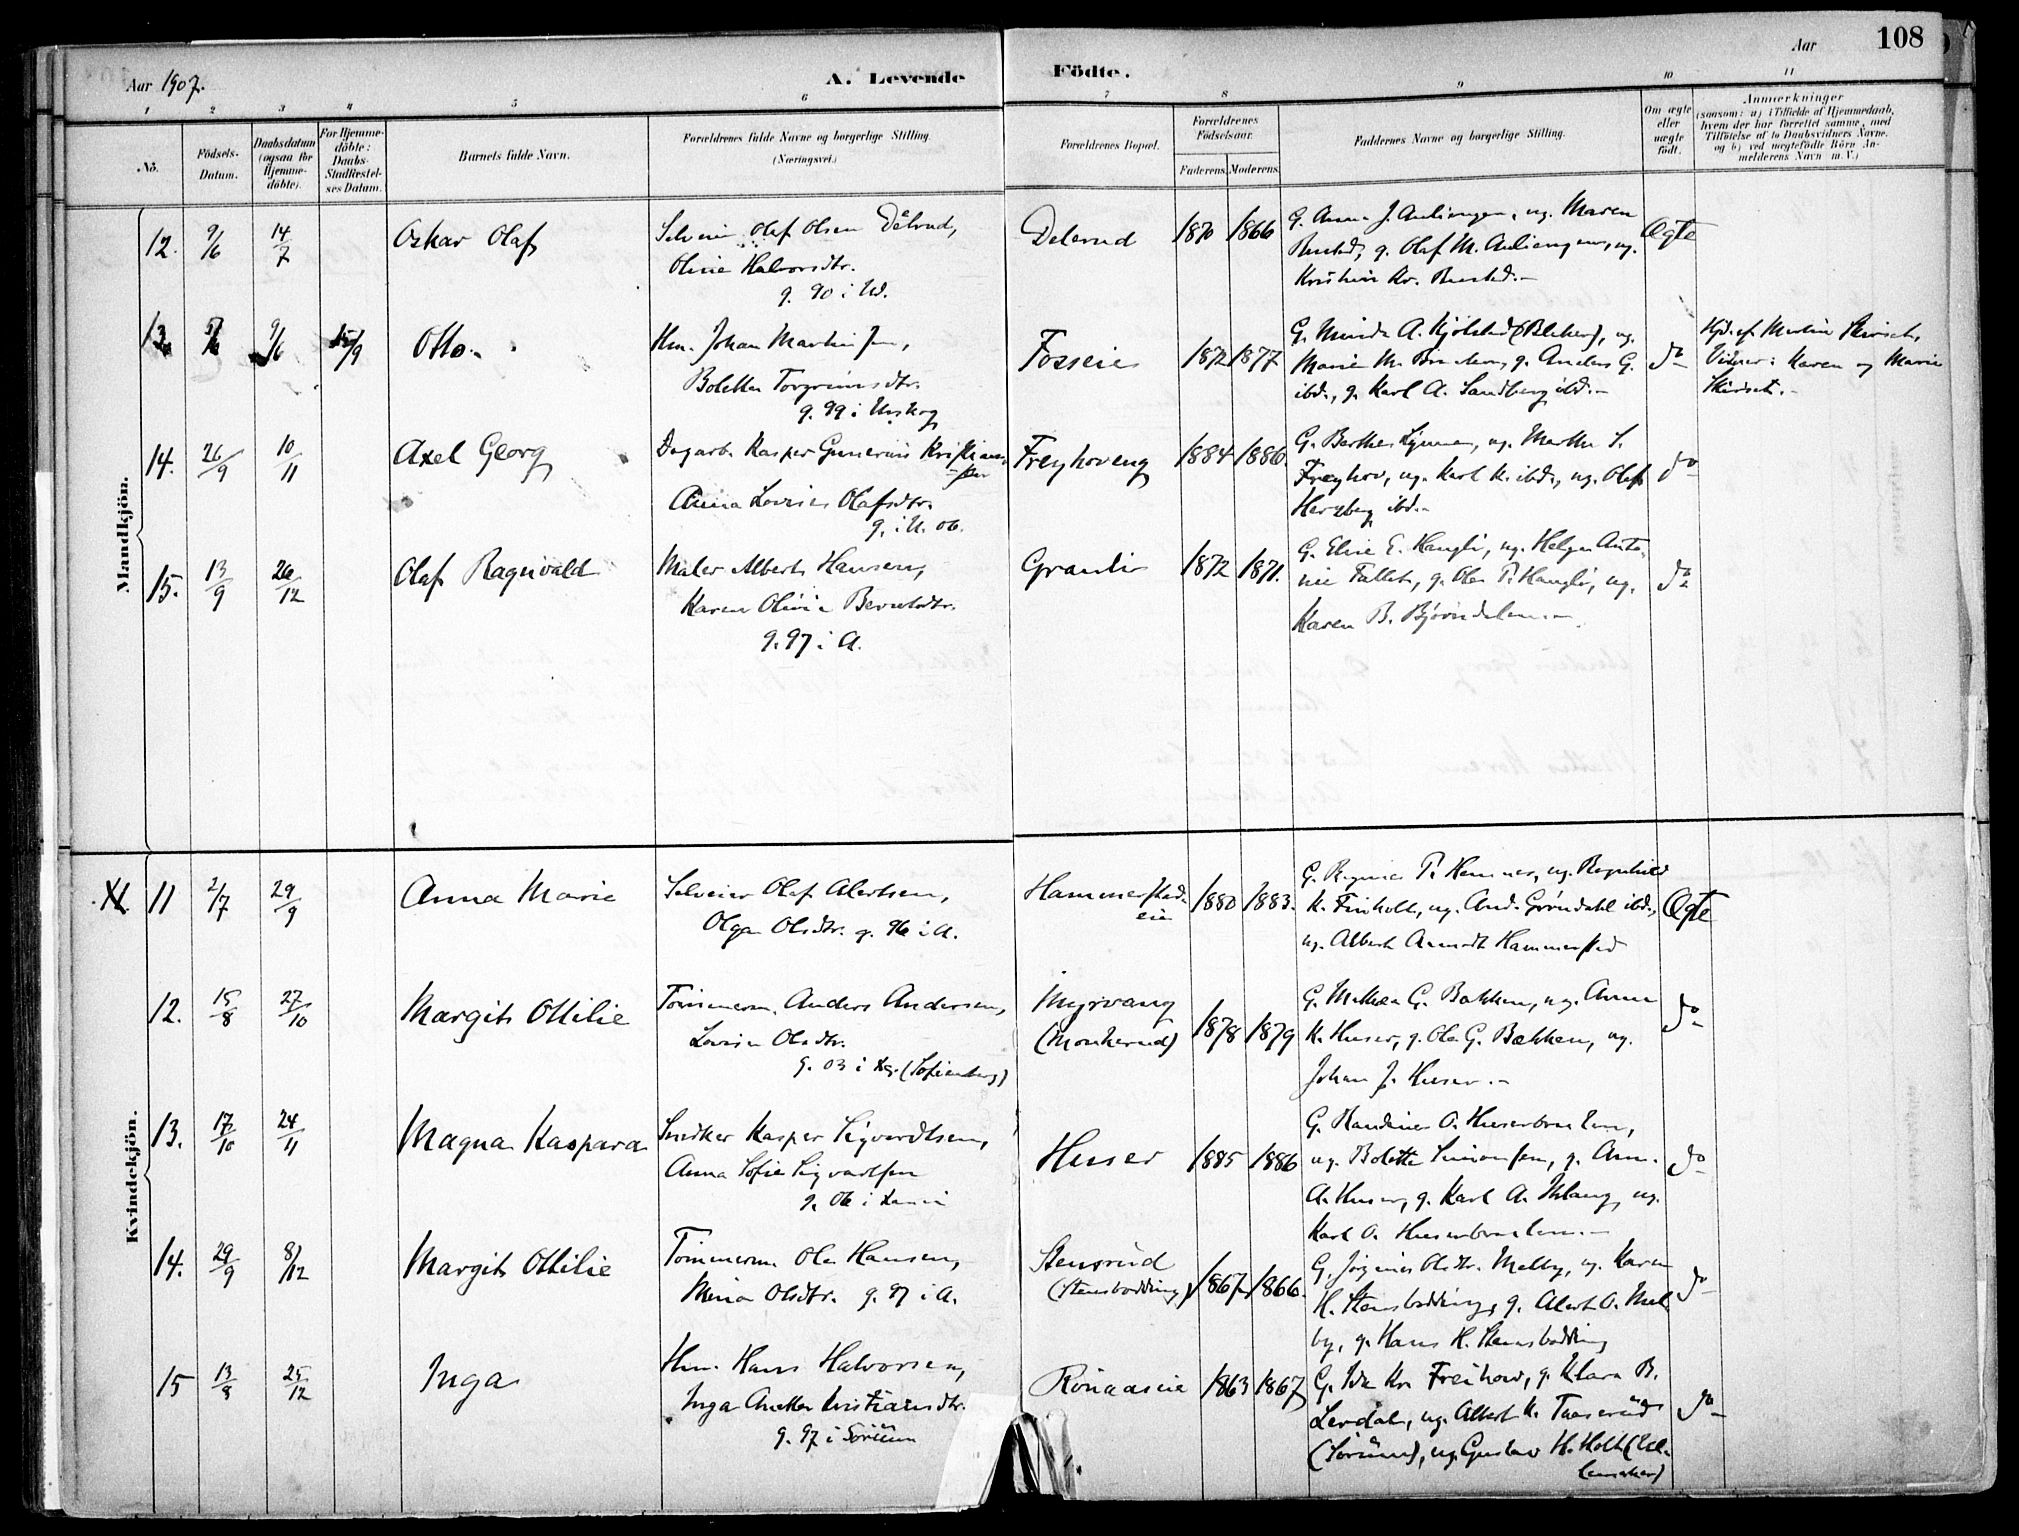 108
Aar 1907.
A. Levende
Födte.
Aar
1 2 3 4 5 6 7 8 9 10 11
No.
Födsels-Datum.
Daabsdatum (ogsaa for Hjemme-döbte).
For Hjemme-döbte: Daabs-Stadfæstel-ses Datum.
Barnets fulde Navn.
Forældrenes fulde Navne og borgerlige Stilling.
(Næringsvei.)
Forældrenes Bopæl.
Forældrenes Födselsaar.
Faderens. Moderens.
Faddernes Navne og borgerlige Stilling.
Om ægte eller uægte födt.
Anmærkninger
(saasom: a) i Tilfælde af Hjemmedaab,
hvem der har forrettet samme, med
Tilföielse af to Daabsvidners Navne.
og b) ved uægtefödte Börn An-
melderens Navn m. V.)
Mandkjön.
12. 9/6 14/7 Oskar Olaf
Selveier Olaf Olsen Dælrud,
Oline Halvorsdtr.
g. 90 i Ud.
Delerud 1870 1866
G. Anna J. Auliengen, ug. Maren
Bustad, g. Olaf M. Auliengen, ug.
Kristian Kr. Bustad.-
Ægte
13. 9/6 15/9 Otto.
Hm. Johan Martinsen,
Bolette Torgrimsdtr.
g. 99 i Urskog
Fosseie 1872 1877
G. Minda A. Kjölstad (Blaker), ug.
Marie M. Braaten, g. Anders G.
ibd., g. Karl A. Sandberg ibd.-
do
Hjd. af Martin Skirset,
Vidner: Karen og Marie
Skirset.-
14. 26/9 10/11 Axel Georg
Dagarb. Kasper Gunerius Kristian-
sen
Anna Lovise Olafsdtr.
g. i U. 06.
Freyhoveng 1884 1886.
G. Berthe Lynne, ug. Marthe S.
Freyhov, ug. Karl K. ibd., ug. Olaf
Herzberg ibd.-
do
15. 13/9 26/12 Olaf Ragnvald
Maler Albert Hansen,
Karen Olivia Berntsdtr.
g. 97 i A.
Granli 1872 1871.
G. Elise E. Haugli, ug. Helga Anto-
nie Fallet, g. Ole P. Haugli, ug.
Karen B. Bjørndalen.-
do
Kvindekjön.
11 2/7 29/9 Anna Marie
Selveier Olaf Albertsen,
Olga Olsdtr. g. 96 i A.
Hammerstad-
eie 1880 1883.
G. Regine P. Hammer, ug. Ragnhild
K. Finholt, ug. And. Grøndahl ibd.,
ug. Albert Amundt Hammerstad
Ægte
12. 15/8 27/10 Margit Ottilie
Tömmerm. Anders Andersen,
Lovise Olsdtr.
g. 03 i Kr. (Sofienberg)
Myrvang
(Monkerud) 1878 1879
G. Mathea G. Bakken, ug. Anna
K. Huser, g. Ole G. Bakken, ug.
Johan J. Huser.-
do
13. 17/10 24/11 Magna Kaspara
Snedker Kasper Sigvardtsen,
Anna Sofie Sigvardsen
g. 06 i Kr.
Huser 1885 1886
G. Randine O. Huserbraaten,
ug. Bolette Simonsen, g. Ann.
A. Huser, g. Karl A. Ihlang, ug.
Karl O. Huserbraaten.-
do
14. 29/9 8/12 Margit Ottilie
Tömmerm. Ole Hansen,
Mina Olsdtr. g. 97 i A.
Stensrud
(Stensbodding) 1867 1866.
G. Jørgine Olsdtr. Melby, ug. Karen
H. Stensbodding, g. Albert O. Mel
by, g. Hans H. Stensbodding
do
15 13/8 25/12 Inga
Hm. Hans Halvorsen,
Inga Anette Kristiansdtr.
g. 97 i Sörum
Rönaaseie 1863 1867
G. Ida Kr. Freihow, g. Klara B.
Lerdal, ug. Albert K. Taaserud
(Sörum), ug. Gustav H. Holt (Ul-
lensaker)
do